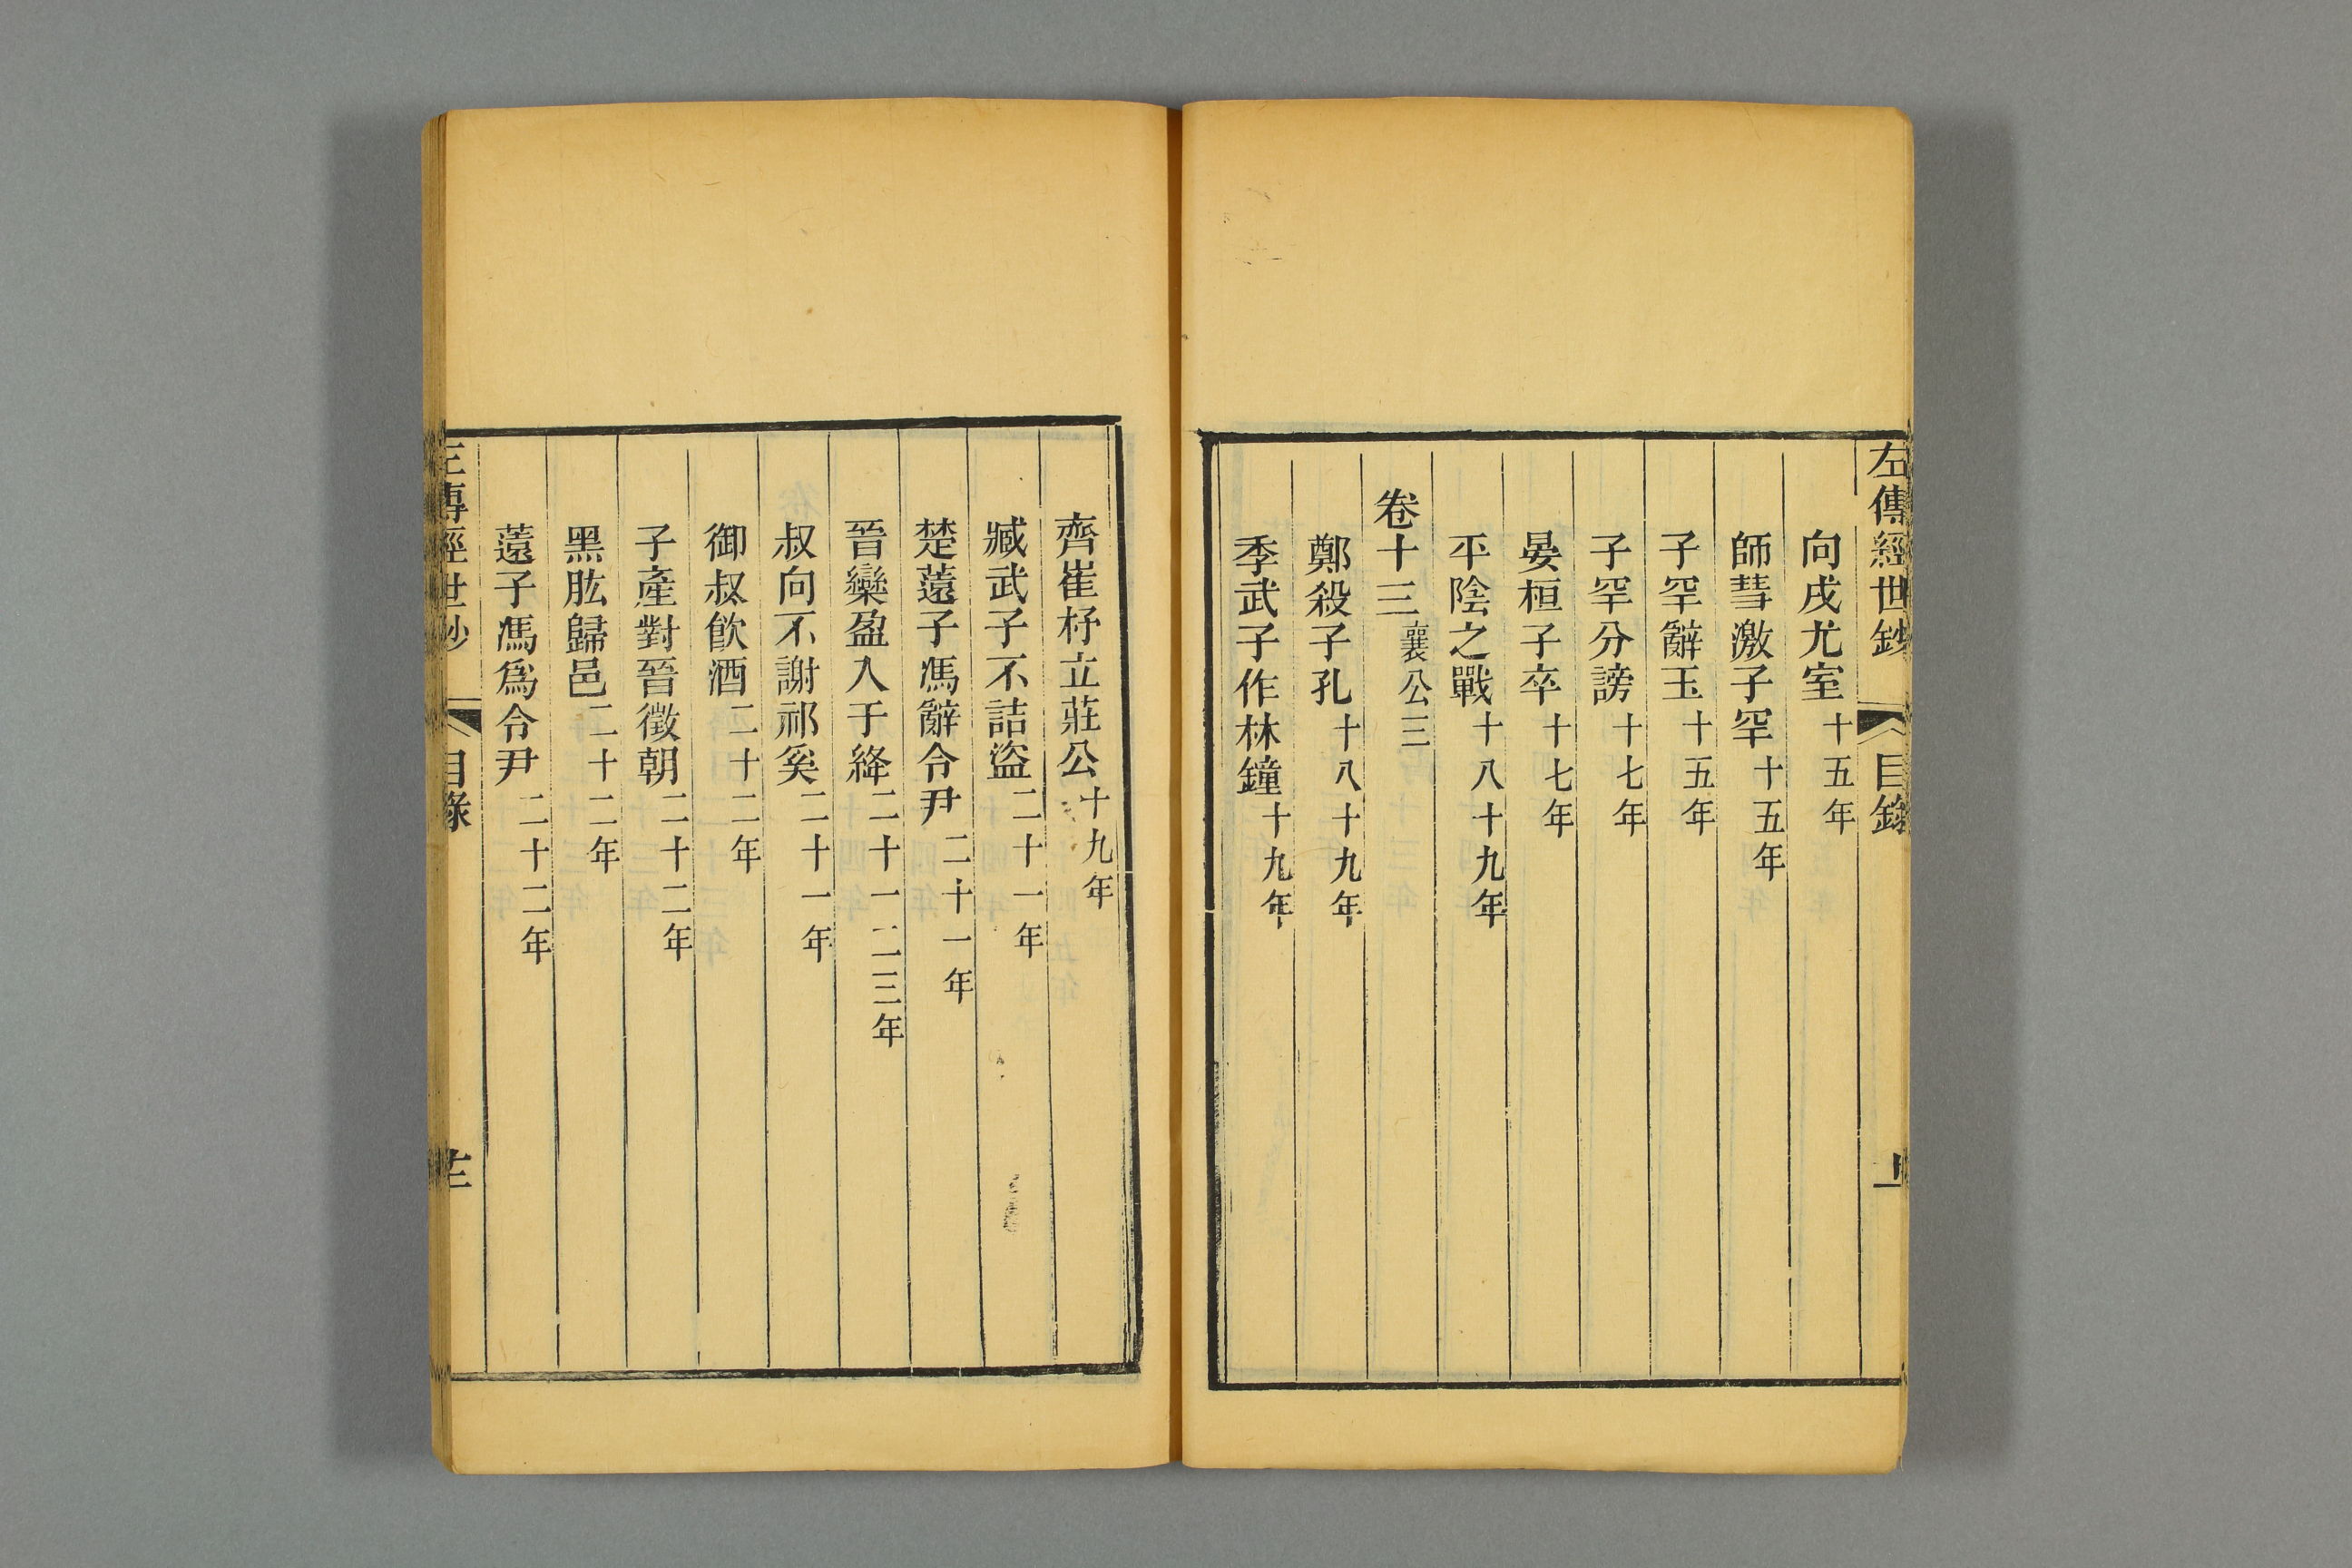 左傳經世鈔 目錄
向戌尤室十五年
師彗激子罕十五年
子罕辭玉十五年
子罕分謗十七年
晏桓子卒十七年
平陰之戰十八十九年
卷十三襄公三
鄭殺子孔十八十九年
季武子作林鐘十九年
齊崔杼立莊公十九年
臧武子不詰盜二十一年
楚薳子馮辭令尹二十一年
晉欒盈入于絳二十一二三年
叔向不謝祁奚二十一年
御叔飮酒二十二年
子產對晉徵朝二十二年
黑肱歸邑二十二年
薳子馮爲令尹二十二年
左傳經世鈔 目錄